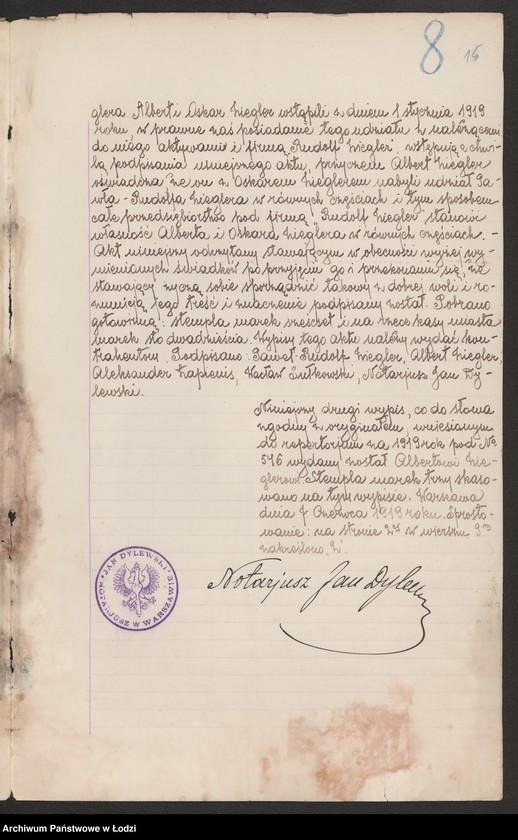 8
15
glera Albert i Oskar Ziegler wstąpili z dniem 1 stycznia 1919
roku, w prawne nas posiadanie tego udziału z należącemi
do niego aktywami i firmą "Rudolf Ziegler", wstępują z chwi-
lą podpisania niniejszego aktu, przyczem Albert Ziegler
oświadcza że on z Oskarem Zieglerem nabyli udział Pa-
wła-Rudolfa Zieglera w równych częściach i tym sposobem
całe przedsiębiorstwo pod firmą "Rudolf Ziegler" stanowi
własność Alberta i Oskara Zieglera w równych częściach. -
Akt niniejszy odczytany stawającym w obecności wyżej wy-
mienionych świadków po przyjęciu go i przekonaniu się, że
stawający życzą sobie sporządzić takowy z dobrej woli i ro-
zumieją jego treść i znaczenie podpisany został. Pobrano
gotowizną: stempla marek sześćset i na rzecz kasy miasta
marek sto dwadzieścia. Wypisy tego aktu należy wydać kon-
trahentom. Podpisano: Paweł-Rudolf Ziegler, Albert Ziegler,
Aleksander Łapienis, Wacław Sułkowski, Notarjusz Jan Dy-
lewski.
Niniejszy drugi wypis, co do słowa
zgodny z oryginałem, wniesionym
do repertorjum na 1919 rok pod №
576 wydany został Albertowi Zie-
glerowi. Stempla marek trzy skaso-
wano na tym wypisie. Warszawa
dnia 7 Czerwca 1919 roku. Sprosto-
wanie: na stronie 2ej w wierszu 9ym
nakreślono "z".
Notarjusz Jan Dylewski
JAN DYLEWSKI
NOTARJUSZ W WARSZAWIE
Archiwum Państwowe w Łodzi